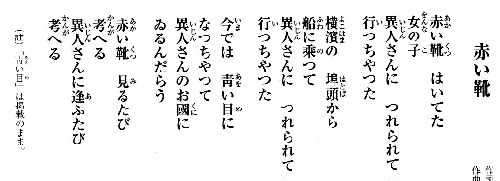 赤い靴
作
作曲
赤い靴 はいてた
女の子
異人さんに つれられて
行つちやつた
横濱の 埠頭から
船に乘つて
異人さんに つれられて
行つちやつた
今では 青い目に
なつちやつて
異人さんのお國に
ゐるんだらう
赤い靴 見るたび
考へる
異人さんに逢ふたび
考へる
(註)「青い目」は掲載のまま。